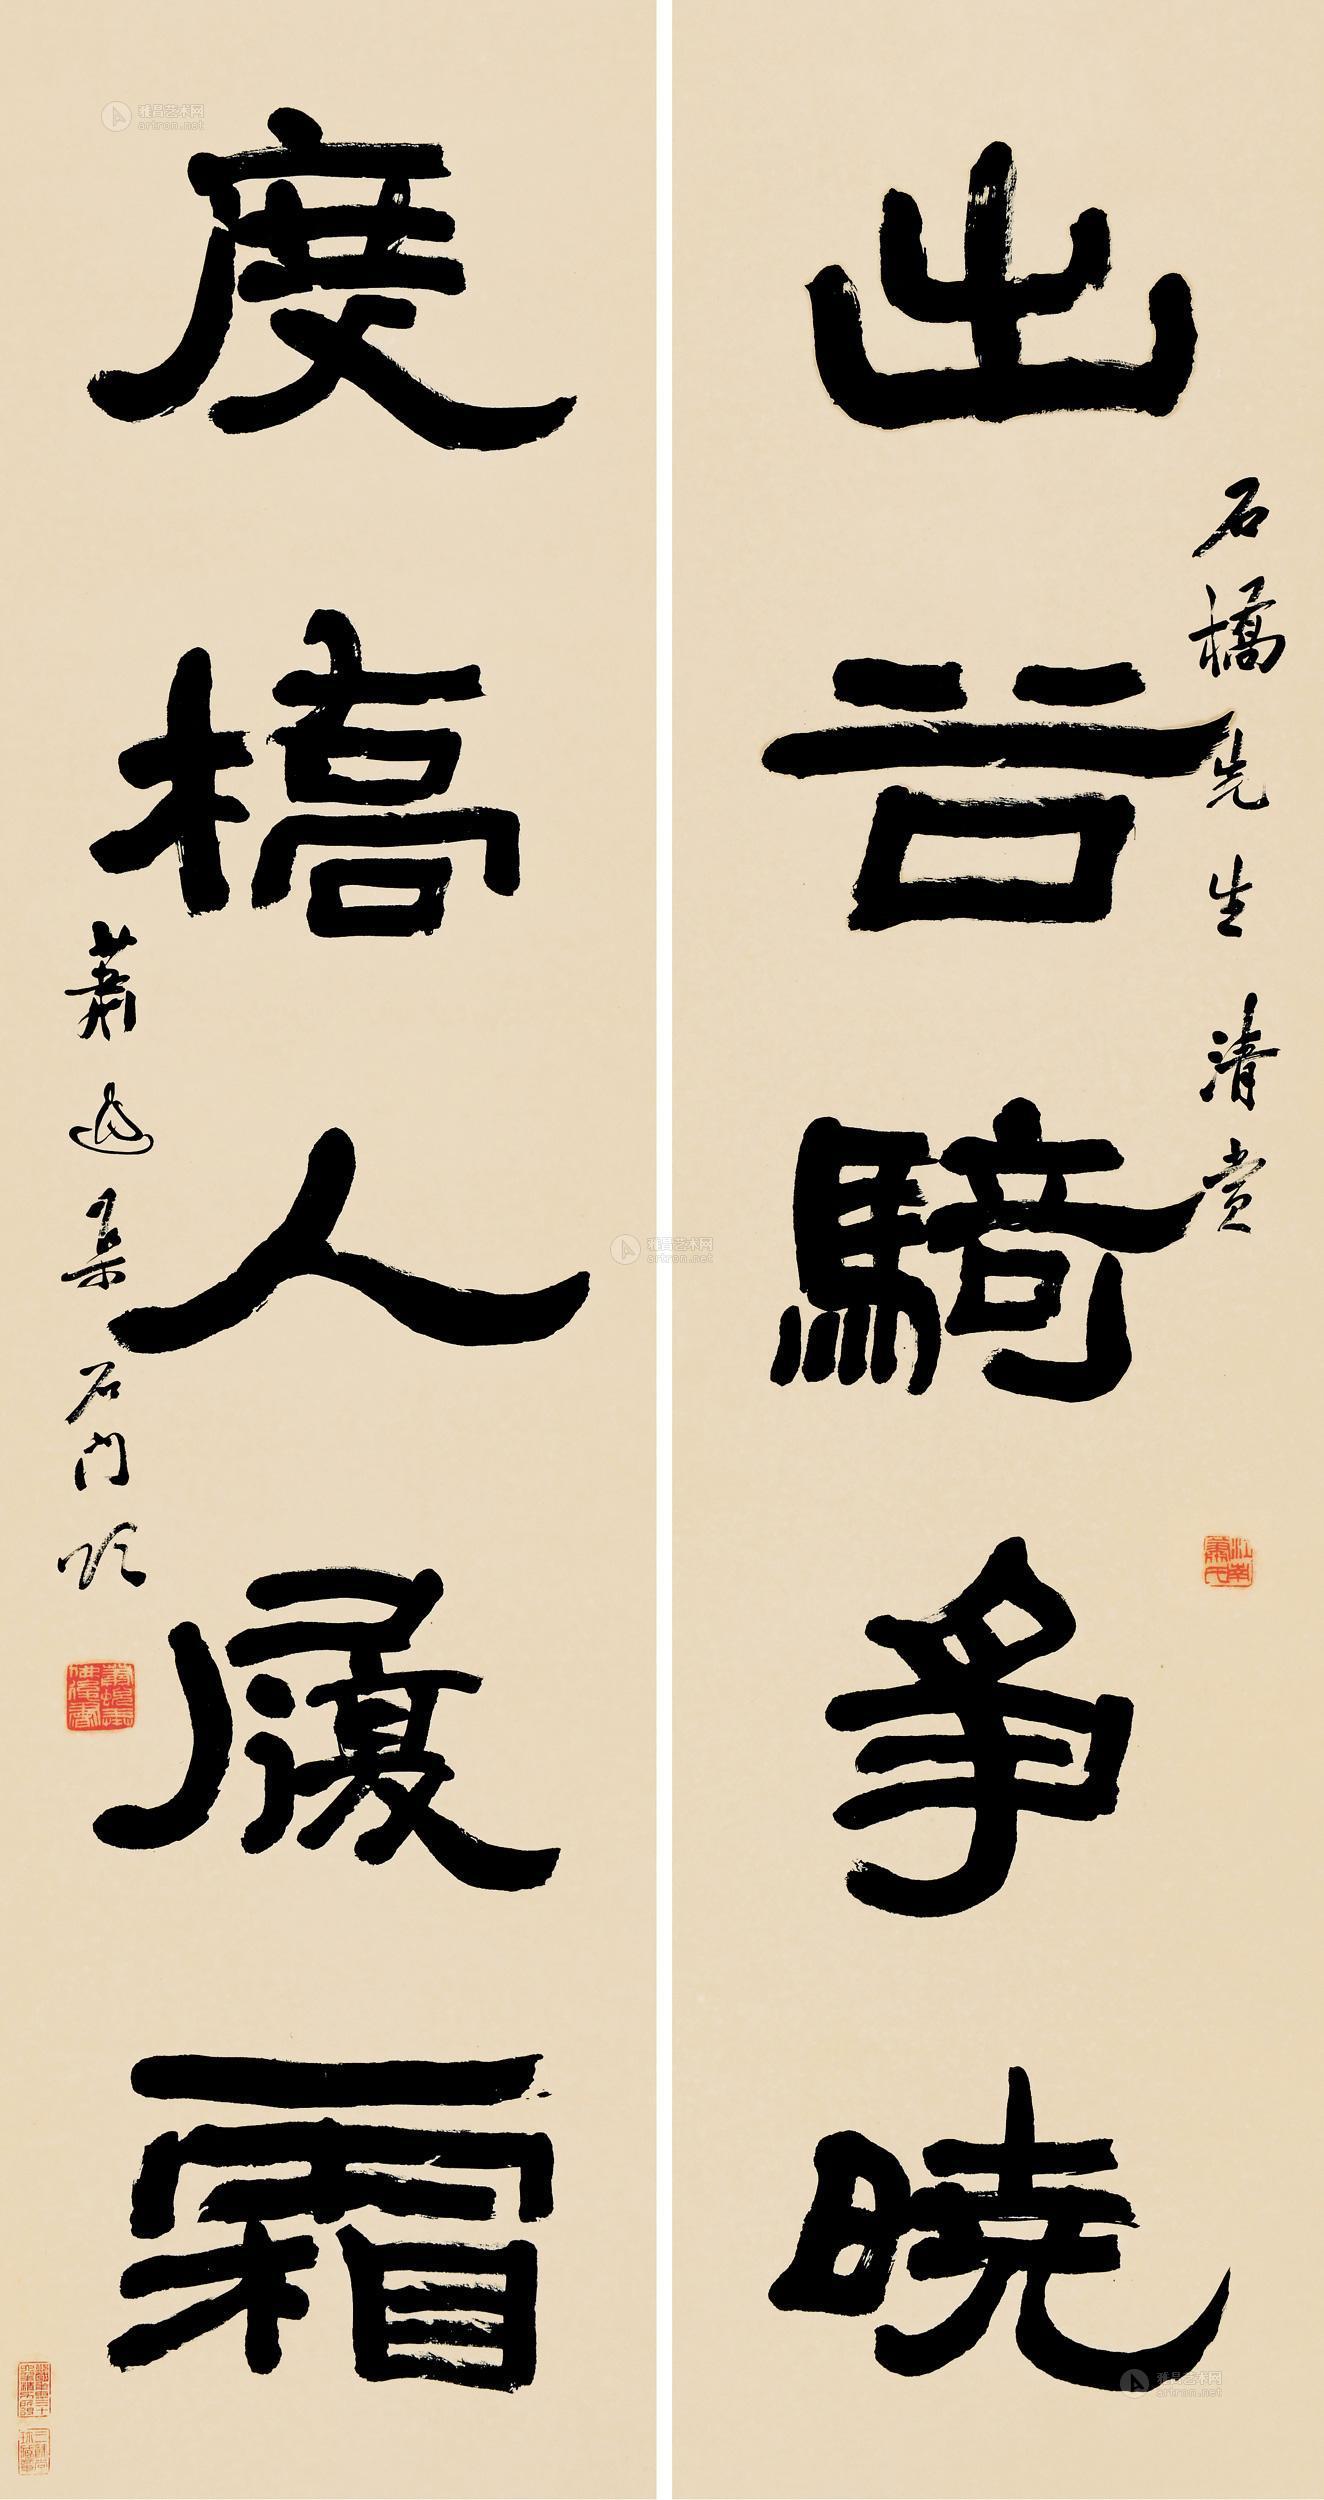 出谷騎爭曉
石橋先生清賞
江南蕭氏
度橋人履霜
蕭退集石門頌
雅昌艺术网
artron.net
雅昌艺术网
artron.net
雅昌艺术网
artron.net